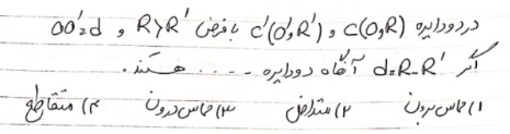 در دو دایره C(O,R) و C'(O',R') با فرض R>R' و OO'=d
اگر d=R-R' آنگاه دو دایره ---- هستند.
۱) مماس برون ۲) متداخل ۳) مماس درون ۴) متقاطع